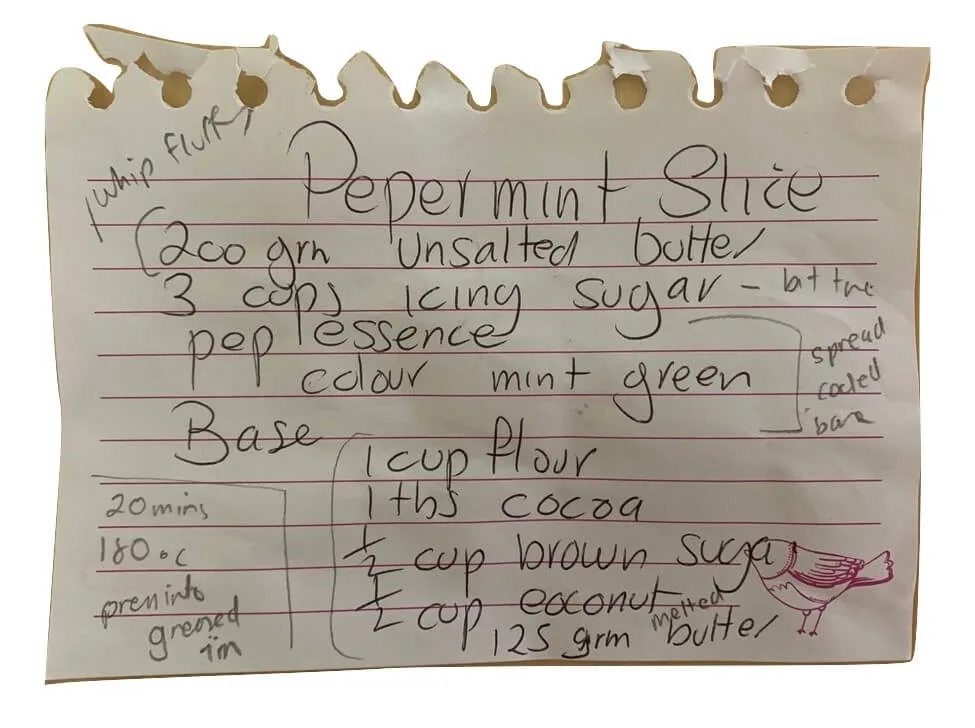 whip fluffy
Pepermint Slice
200 grm unsalted butter
3 cups icing sugar - bit time
pep essence
colour mint green
spread
cooled
base
Base
1 cup flour
1 tbs cocoa
1/2 cup brown suga
1/2 cup coconut
125 grm melted butter
20 mins
180°c
press into
greased
tin